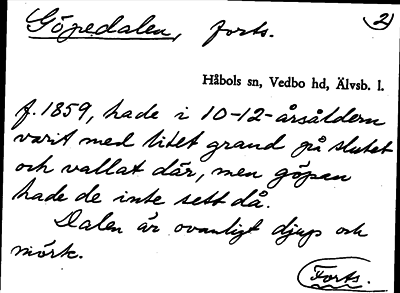 Göpedalen, forts.
2
Håbols sn, Vedbo hd, Älvsb. l.
f. 1859, hade i 10-12-årsåldern
varit med litet grand på slutet
och vallat där, men göpan
hade de inte sett då.
Dalen är ovanligt djup och
mörk.
Forts.